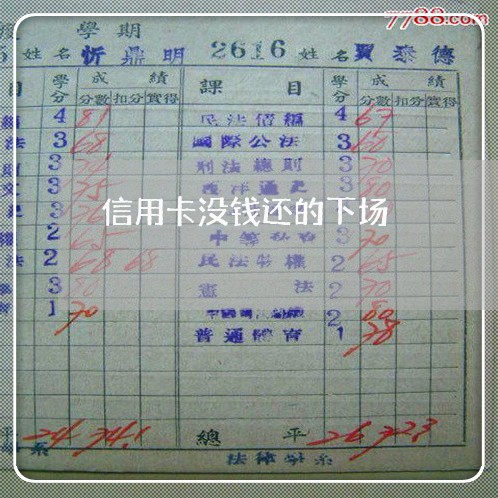 7788.com
學期
姓名 忻鼎明 2616 姓名 賈泰德
目 學分 成績 課目 學分 成績
分數 扣分 實得 分數 扣分 實得
4 81 民法債編 4 67
法 3 68 國際公法 3 60
則 3 刑法總則 3 70
文 3 75 西洋通史 3 80
信用卡没钱还的下场
權 2 65 3 70
法 2 68 68 民法物權 2 65
3 80 憲法 2 70
育 1 70 2 80
普通體育 1 78
平 24 74.1 總平 26 72.3
系 法律學系